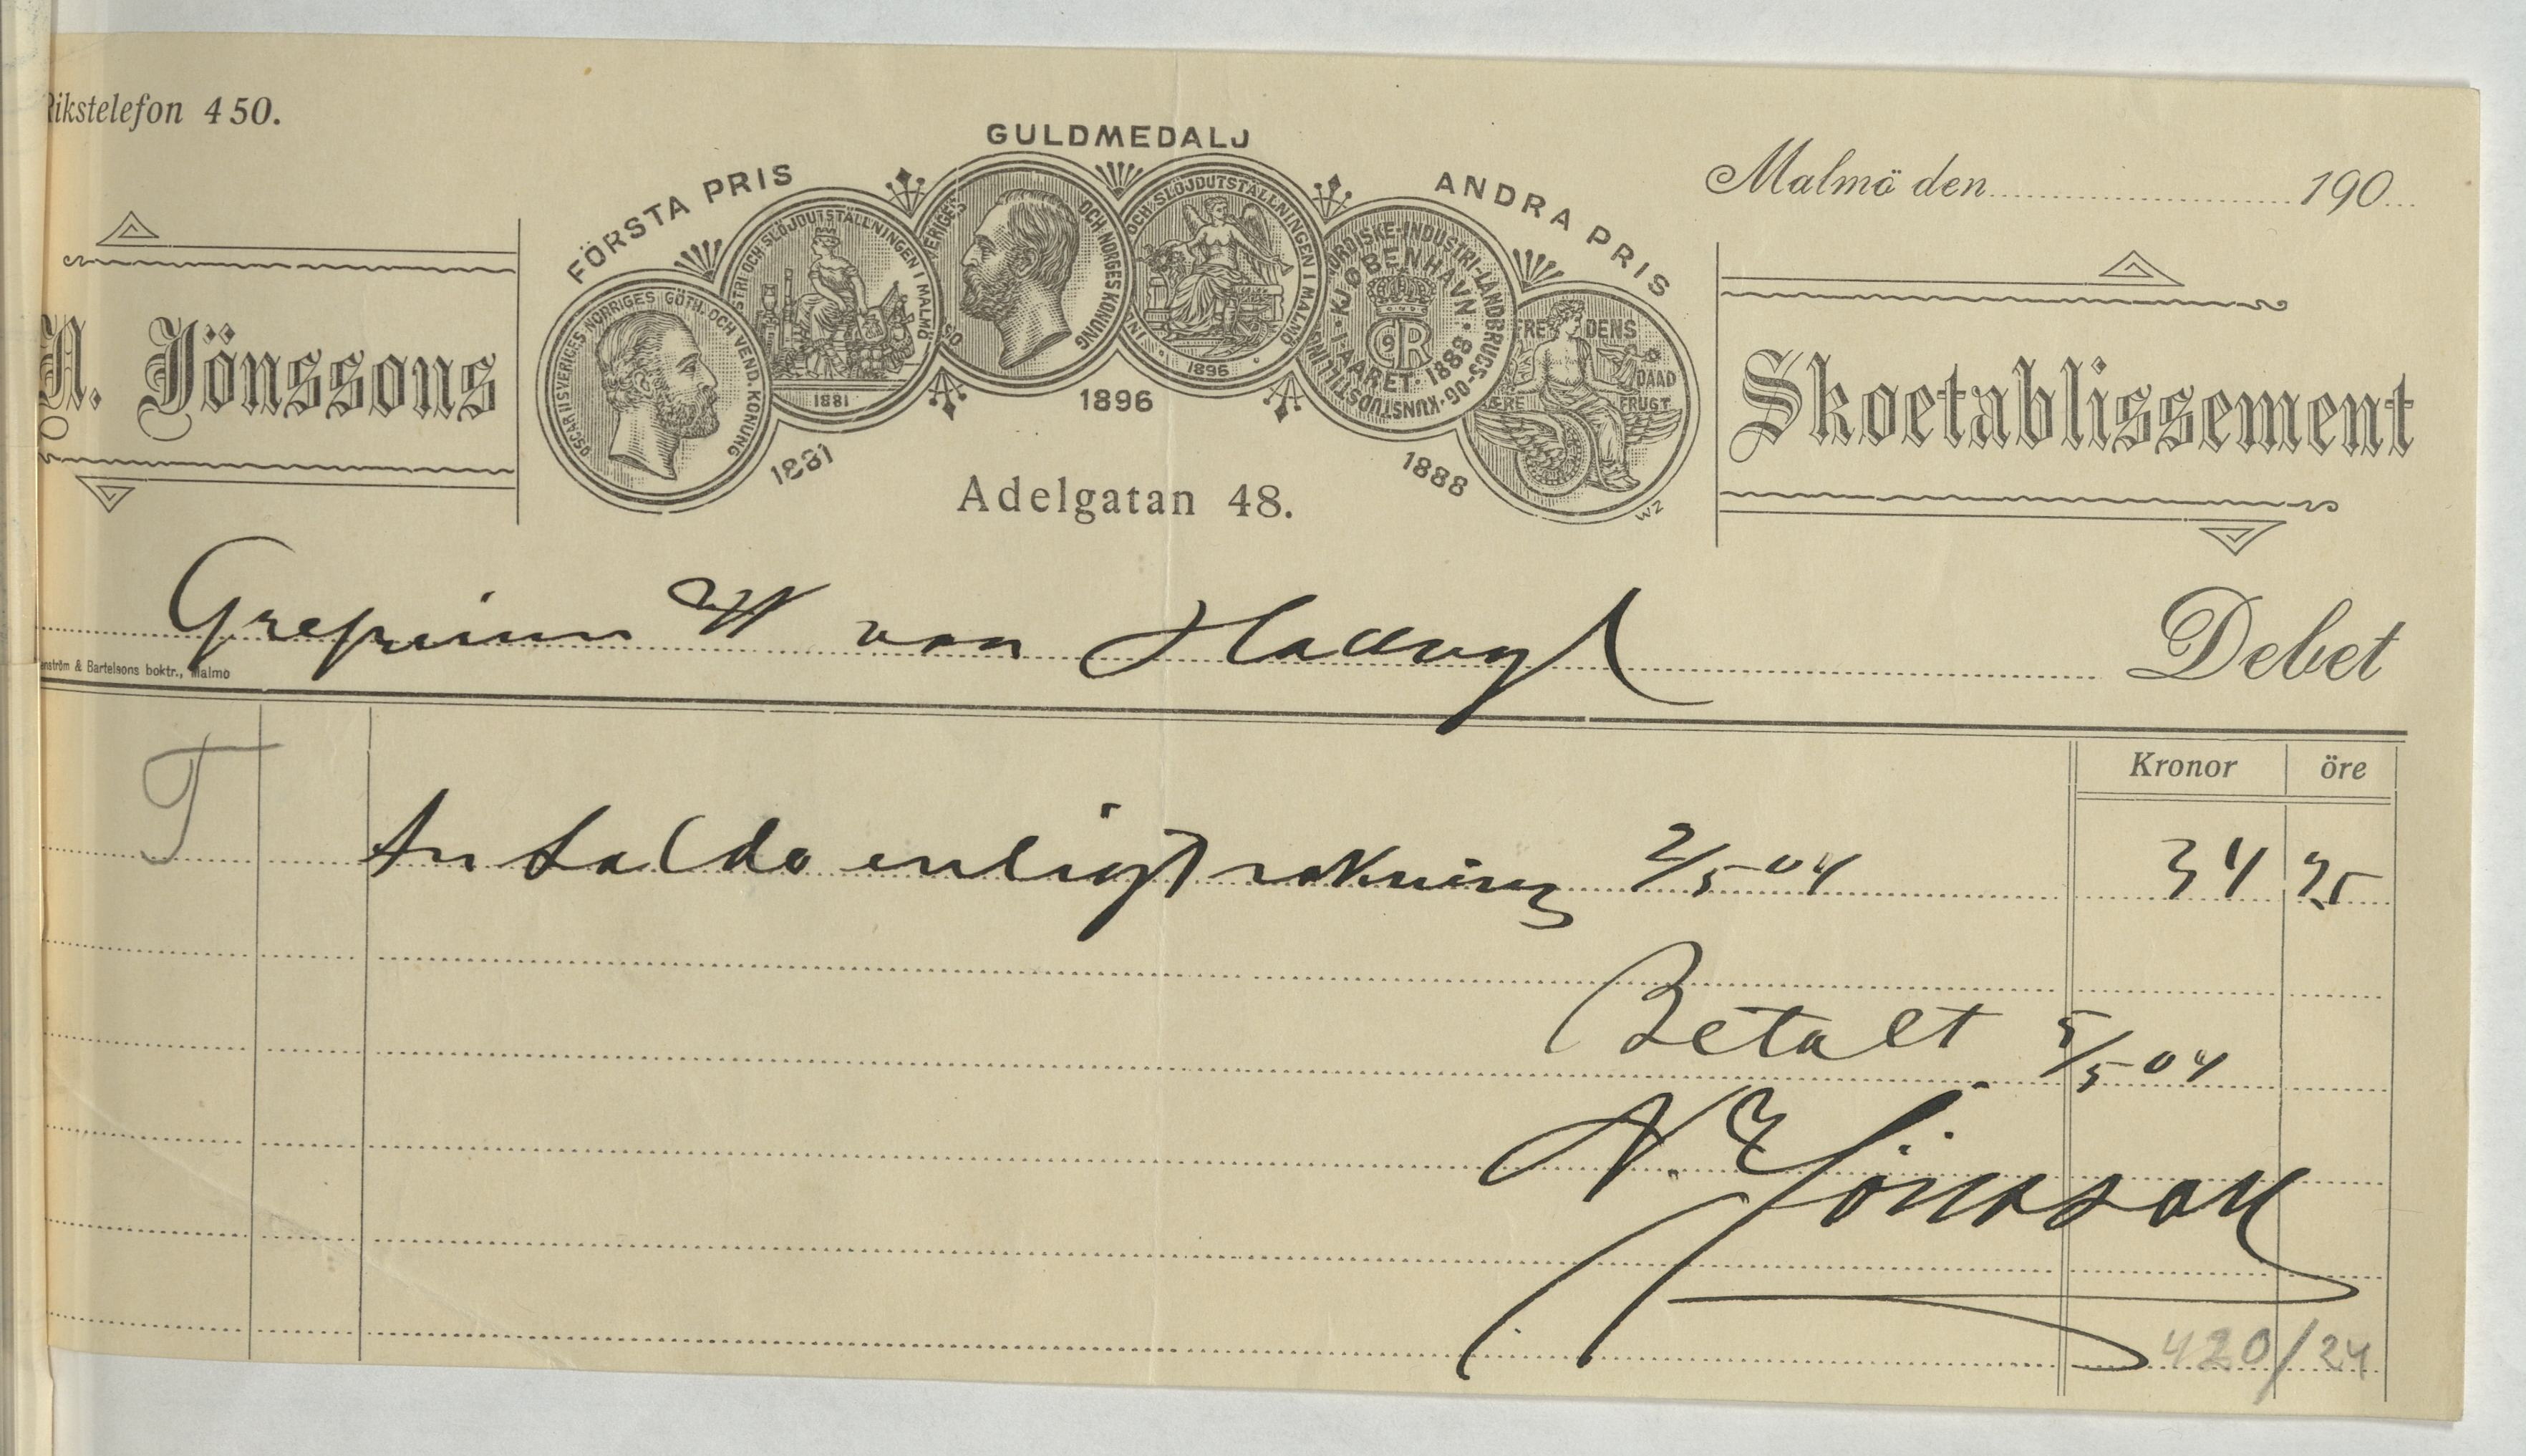 Rikstelefon 450.
Malmö den 190
FÖRSTA PRIS
GULDMEDALJ
ANDRA PRIS
OSCAR II SVERIGES NORRIGES GÖTH. OCH VEND. KONUNG
STRI OCH SLÖJDUTSTÄLLNINGEN I MALMÖ
1881
VERIGES OCH NORGES KONUNG
OCH SLÖJDUTSTÄLLNINGEN I MALMÖ
1896
NORDISKE-INDUSTRI-LANDBRUGS-OG-KUNSTUDSTILLING
I KJØBENHAVN
I AARET 1888
C9R
FREDENS
DAAD
ÆRE FRUGT
1881
1896
1888
WZ
N. Jönssons
Skoetablissement
Adelgatan 48.
Grefvinnan W von Hallwyl
Debet
enström & Bartelsons boktr., Malmö
Kronor öre
T
An Saldo enligt räkning 2/5 04 34 75
Betalt 5/5 04
N. E Jönsson
420/24